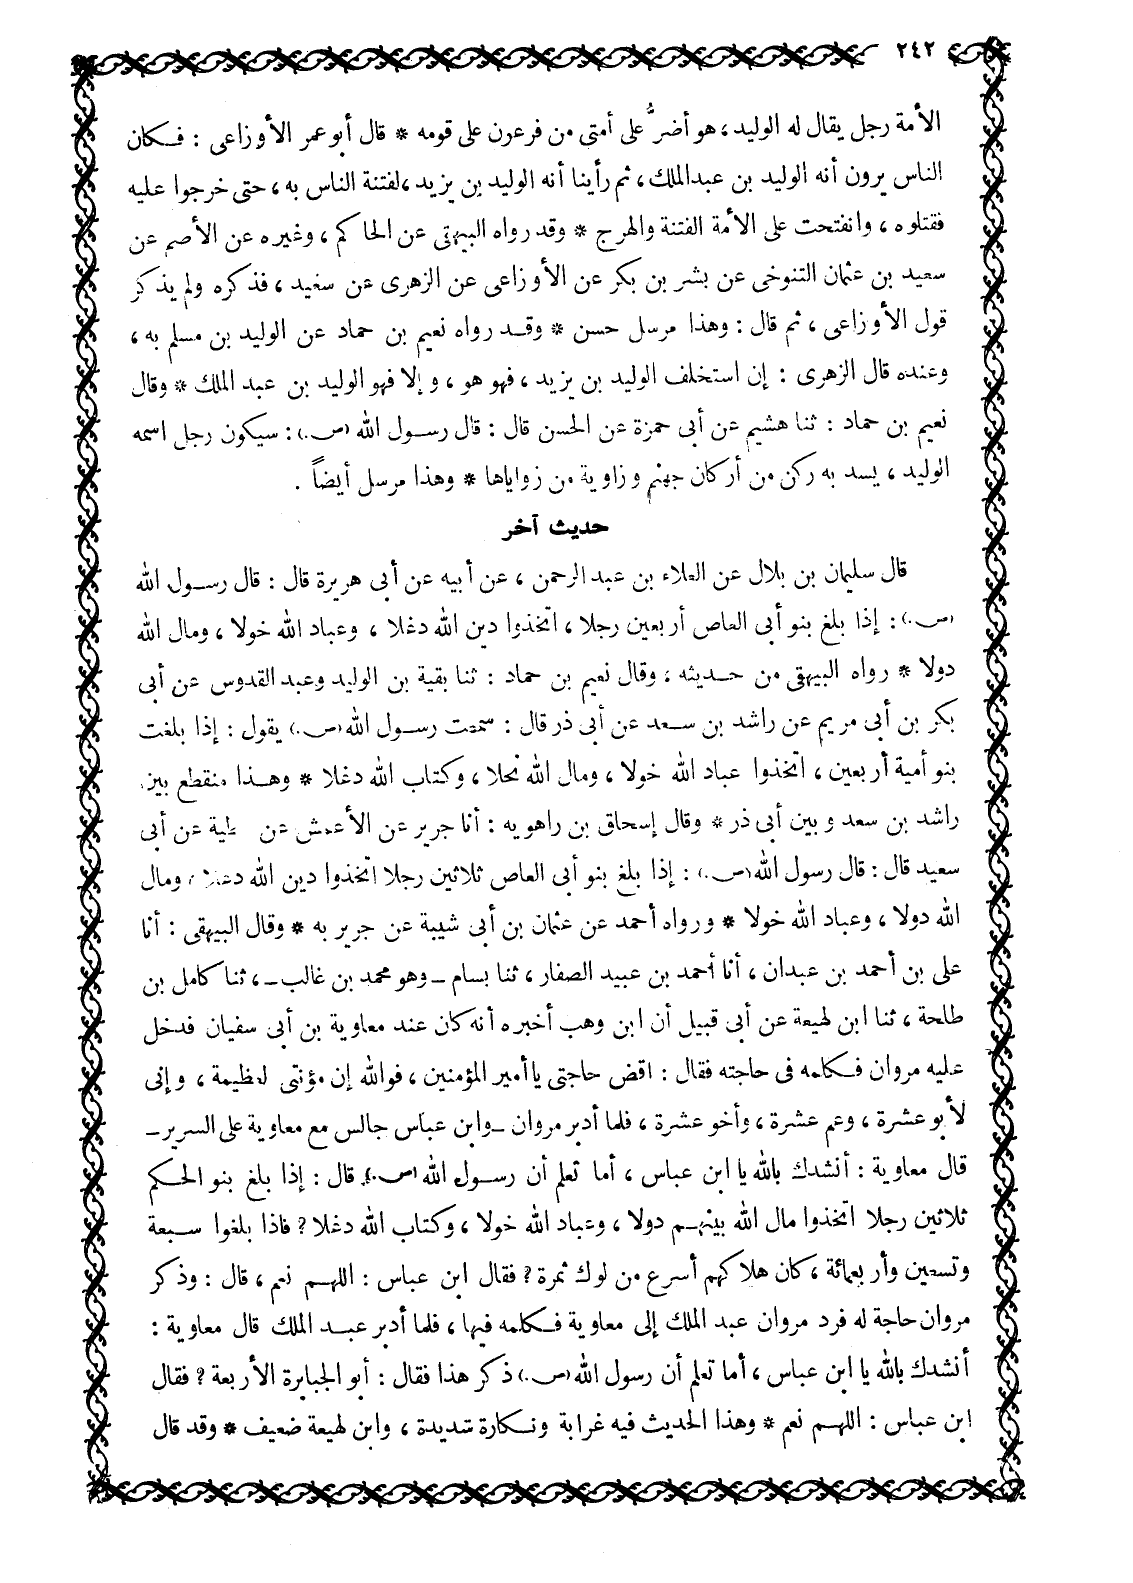 ٢٤٢
الأمة رجل يقال له الوليد، هو أضرُّ على أمتى من فرعون على قومه * قال أبو عمر الأوزاعى : فكان
الناس يرون أنه الوليد بن عبدالملك، ثم رأينا أنه الوليد بن يزيد، لفتنة الناس به، حتى خرجوا عليه
فقتلوه، وانفتحت على الأمة الفتنة والهرج * وقد رواه البيهقى عن الحاكم، وغيره عن الأصم عن
سعيد بن عثمان التنوخى عن بشر بن بكر عن الأوزاعى عن الزهرى عن سعيد، فذكره ولم يذكر
قول الأوزاعى، ثم قال : وهذا مرسل حسن * وقد رواه نعيم بن حماد عن الوليد بن مسلم به،
وعنده قال الزهرى : إن استخلف الوليد بن يزيد، فهو هو، وإلا فهو الوليد بن عبد الملك * وقال
نعيم بن حماد : ثنا هشيم عن أبى حمزة عن الحسن قال : قال رسول الله (ص.) : سيكون رجل اسمه
الوليد، يسد به ركن من أركان جهنم وزاوية من زواياها * وهذا مرسل أيضاً .
حديث آخر
قال سليمان بن بلال عن العلاء بن عبد الرحمن، عن أبيه عن أبى هريرة قال : قال رسول الله
(ص.) : إذا بلغ بنو أبى العاص أربعين رجلا، اتخذوا دين الله دغلا، وعباد الله خولا، ومال الله
دولا * رواه البيهقى من حديثه، وقال نعيم بن حماد : ثنا بقية بن الوليد وعبد القدوس عن أبى
بكر بن أبى مريم عن راشد بن سعد عن أبى ذر قال : سمعت رسول الله (ص.) يقول : إذا بلغت
بنو أمية أربعين، اتخذوا عباد الله خولا، ومال الله نحلا، وكتاب الله دغلا * وهذا منقطع بين
راشد بن سعد وبين أبى ذر * وقال إسحاق بن راهويه : أنا جرير عن الأعمش عن عطية عن أبى
سعيد قال : قال رسول الله (ص.) : إذا بلغ بنو أبى العاص ثلاثين رجلا اتخذوا دين الله دغلا، ومال
الله دولا، وعباد الله خولا * ورواه أحمد عن عثمان بن أبى شيبة عن جرير به * وقال البيهقى : أنا
على بن أحمد بن عبدان، أنا أحمد بن عبيد الصفار، ثنا بسام _ وهو محمد بن غالب _، ثنا كامل بن
طلحة، ثنا ابن لهيعة عن أبى قبيل أن ابن وهب أخبره أنه كان عند معاوية بن أبى سفيان فدخل
عليه مروان فكلمه فى حاجته فقال : اقض حاجتى يا أمير المؤمنين، فوالله إن مؤنتى لعظيمة، وإنى
لأبو عشرة، وعم عشرة، وأخو عشرة، فلما أدبر مروان _ وابن عباس جالس مع معاوية على السرير _
قال معاوية : أنشدك بالله يا ابن عباس، أما تعلم أن رسول الله (ص.) قال : إذا بلغ بنو الحكم
ثلاثين رجلا اتخذوا مال الله بينهم دولا، وعباد الله خولا، وكتاب الله دغلا ؟ فاذا بلغوا سبعة
وتسعين وأربعمائة، كان هلاكهم أسرع من لوك ثمرة ؟ فقال ابن عباس : اللهم نعم، قال : وذكر
مروان حاجة له فرد مروان عبد الملك إلى معاوية فكلمه فيها، فلما أدبر عبد الملك قال معاوية :
أنشدك بالله يا ابن عباس، أما تعلم أن رسول الله (ص.) ذكر هذا فقال : أبو الجبابرة الأربعة ؟ فقال
ابن عباس : اللهم نعم * وهذا الحديث فيه غرابة ونكارة شديدة، وابن لهيعة ضعيف * وقد قال